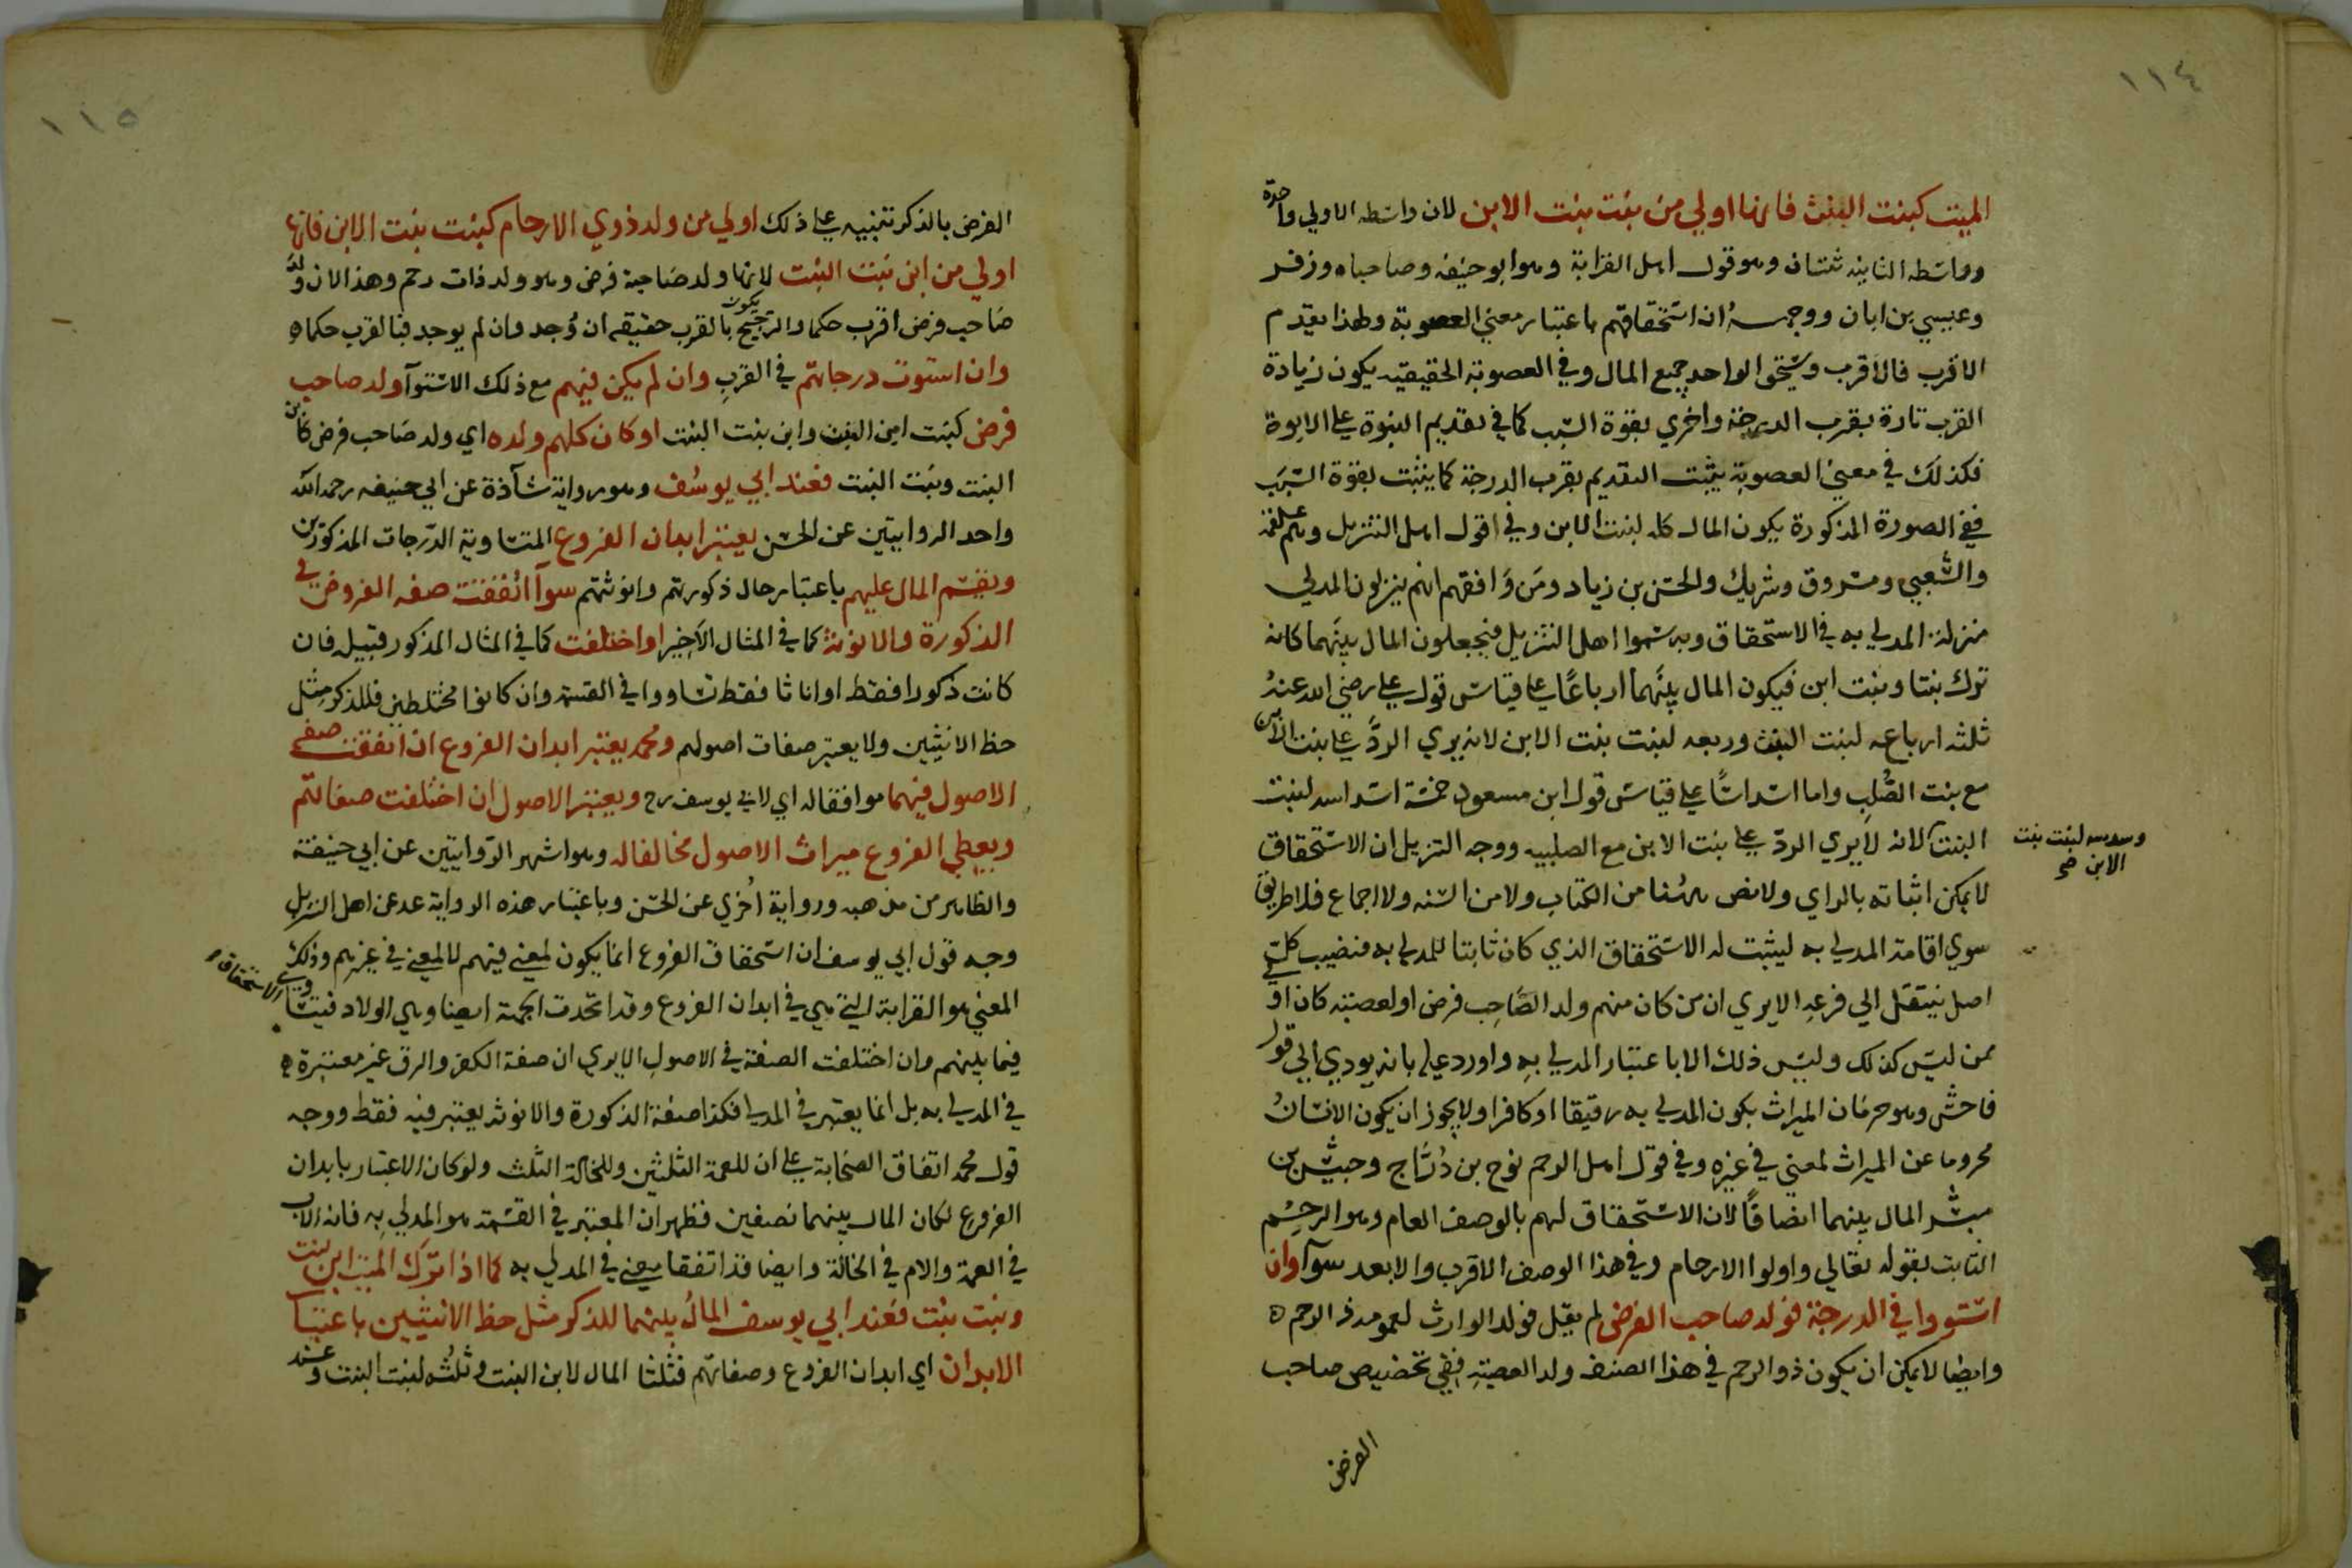 ١١٤
الميت كبنت البنت فانها اولي من بنت بنت الابن لان واسطه الاولي واحدة
وواسطه الثانيه ثنتان وهو قول اهل القرابة وهو ابو حنيفه وصاحباه وزفر
وعيسي بن ابان ووجهه ان استحقاقهم باعتبار معني العصوبة ولهذا يقدم
الاقرب فالاقرب ويستحق الواحد جميع المال وفي العصوبة الحقيقيه يكون زيادة
القرب تارة بقرب الدرجة واخري بقوة السبب كما في تقديم البنوة علي الابوة
فكذلك في معني العصوبة يثبت التقديم بقرب الدرجة كما يثبت بقوة السبب
ففي الصورة المذكورة يكون المال كله لبنت الابن وفي اقول اهل التنزيل وهم علقمة
والشعبي ومسروق وشريك والحسن بن زياد ومن وافقهم انهم ينزلون المدلي
منزلة المدلي به في الاستحقاق وبه سموا اهل التنزيل فيجعلون المال بينهما كانه
ترك بنتا وبنت ابن فيكون المال بينهما ارباعا علي قياس قول علي رضي الله عنه
ثلثه ارباعه لبنت البنت وربعه لبنت بنت الابن لانه يري الرد علي بنت الابن
مع بنت الصلب واما اسداسا علي قياس قول ابن مسعود خمسة اسداسه لبنت
البنت لانه لا يري الرد علي بنت الابن مع الصلبيه ووجه التنزيل ان الاستحقاق
وسدسه لبنت بنت
الابن صح
لا يمكن اثباته بالراي ولا نص ههنا من الكتاب ولا من السنه ولا اجماع فلا طريق
سوي اقامة المدلي به ليثبت له الاستحقاق الذي كان ثابتا للمدلي به فنصيب كل
اصل ينتقل الي فرعه الا يري ان من كان منهم ولد الصاحب فرض او لعصبته كان او
ممن ليس كذلك وليس ذلك الا باعتبار المدلي به واورد عليه بانه يودي الي قول
فاحش وهو حرمان الميراث بكون المدلي به رقيقا او كافرا ولا يجوز ان يكون الانسان
محروما عن الميراث لمعني في غيره وفي قول اهل الرحم نوح بن دراج وحبيش بن
مبشر المال بينهما انصافا لان الاستحقاق لهم بالوصف العام وهو الرحم
الثابت بقوله تعالي واولوا الارحام وفي هذا الوصف الاقرب والابعد سوآ وان
استووا في الدرجة فولد صاحب الفرض لم يقل فولد الوارث لعمومه ذو الرحم
وايضا لا يمكن ان يكون ذو الرحم في هذا الصنف ولد العصبة ففي تخصيص صاحب
الفرض
١١٥
الفرض بالذكر تنبيه علي ذلك اولي من ولد ذوي الارحام كبنت بنت الابن فانها
اولي من ابن بنت البنت لانها ولد صاحبة فرض وهو ولد ذات رحم وهذا لان ولد
صاحب فرض اقرب حكما والترجيح يكون بالقرب حقيقه ان وجد وان لم يوجد فبالقرب حكما
وان استوت درجاتهم في القرب وان لم يكن فيهم مع ذلك الاستوآ ولد صاحب
فرض كبنت ابن البنت وابن بنت البنت او كان كلهم ولده اي ولد صاحب فرض كابن
البنت وبنت البنت فعند ابي يوسف وهو رواية شآذة عن ابي حنيفه رحمه الله
واحد الروايتين عن الحسن يعتبر ابدان الفروع المتساوية الدرجات المذكورين
ويقسم المال عليهم باعتبار حال ذكورتهم وانوثتهم سوآ اتفقت صفه الفروض في
الذكورة والانوثة كما في المثال الاخير او اختلفت كما في المثال المذكور قبيله فان
كانت ذكورا فقط او اناثا فقط تساووا في القسمة وان كانوا مختلطين فللذكر مثل
حظ الانثيين ولا يعتبر صفات اصولهم ومحمد يعتبر ابدان الفروع ان اتفقت صفة
الاصول فيهما موافقا له اي لابي يوسف رح ويعتبر الاصول ان اختلفت صفاتهم
ويعطي الفروع ميراث الاصول مخالفا له وهو اشهر الروايتين عن ابي حنيفة
والظاهر من مذهبه ورواية اخري عن الحسن وباعتبار هذه الرواية عد عن اهل التنزيل
وجه قول ابي يوسف ان استحقاق الفروع انما يكون لمعني فيهم لا لمعني في غيرهم وذلك
المعني هو القرابة التي هي في ابدان الفروع وقد اتحدت الجهة ايضا وهي الولاد فيتساوي
الاستحقاق
فيما بينهم وان اختلفت الصفة في الاصول الا يري ان صفة الكفر والرق غير معتبرة
في المدلي به بل انما يعتبر في المدلي فكذا صفة الذكورة والانوثه يعتبر فيه فقط ووجه
قول محمد اتفاق الصحابة علي ان للعمة الثلثين وللخالة الثلث ولو كان الاعتبار بابدان
الفروع لكان المال بينهما نصفين فظهر ان المعتبر في القسمة هو المدلي به فانه الاب
في العمة والام في الخالة وايضا قد اتفقا يعني في المدلي به كما اذا ترك الميت ابن بنت
وبنت بنت فعند ابي يوسف المال بينهما للذكر مثل حظ الانثيين باعتبار
الابدان اي ابدان الفروع وصفاتهم فثلثا المال لابن البنت وثلثه لبنت البنت وعند